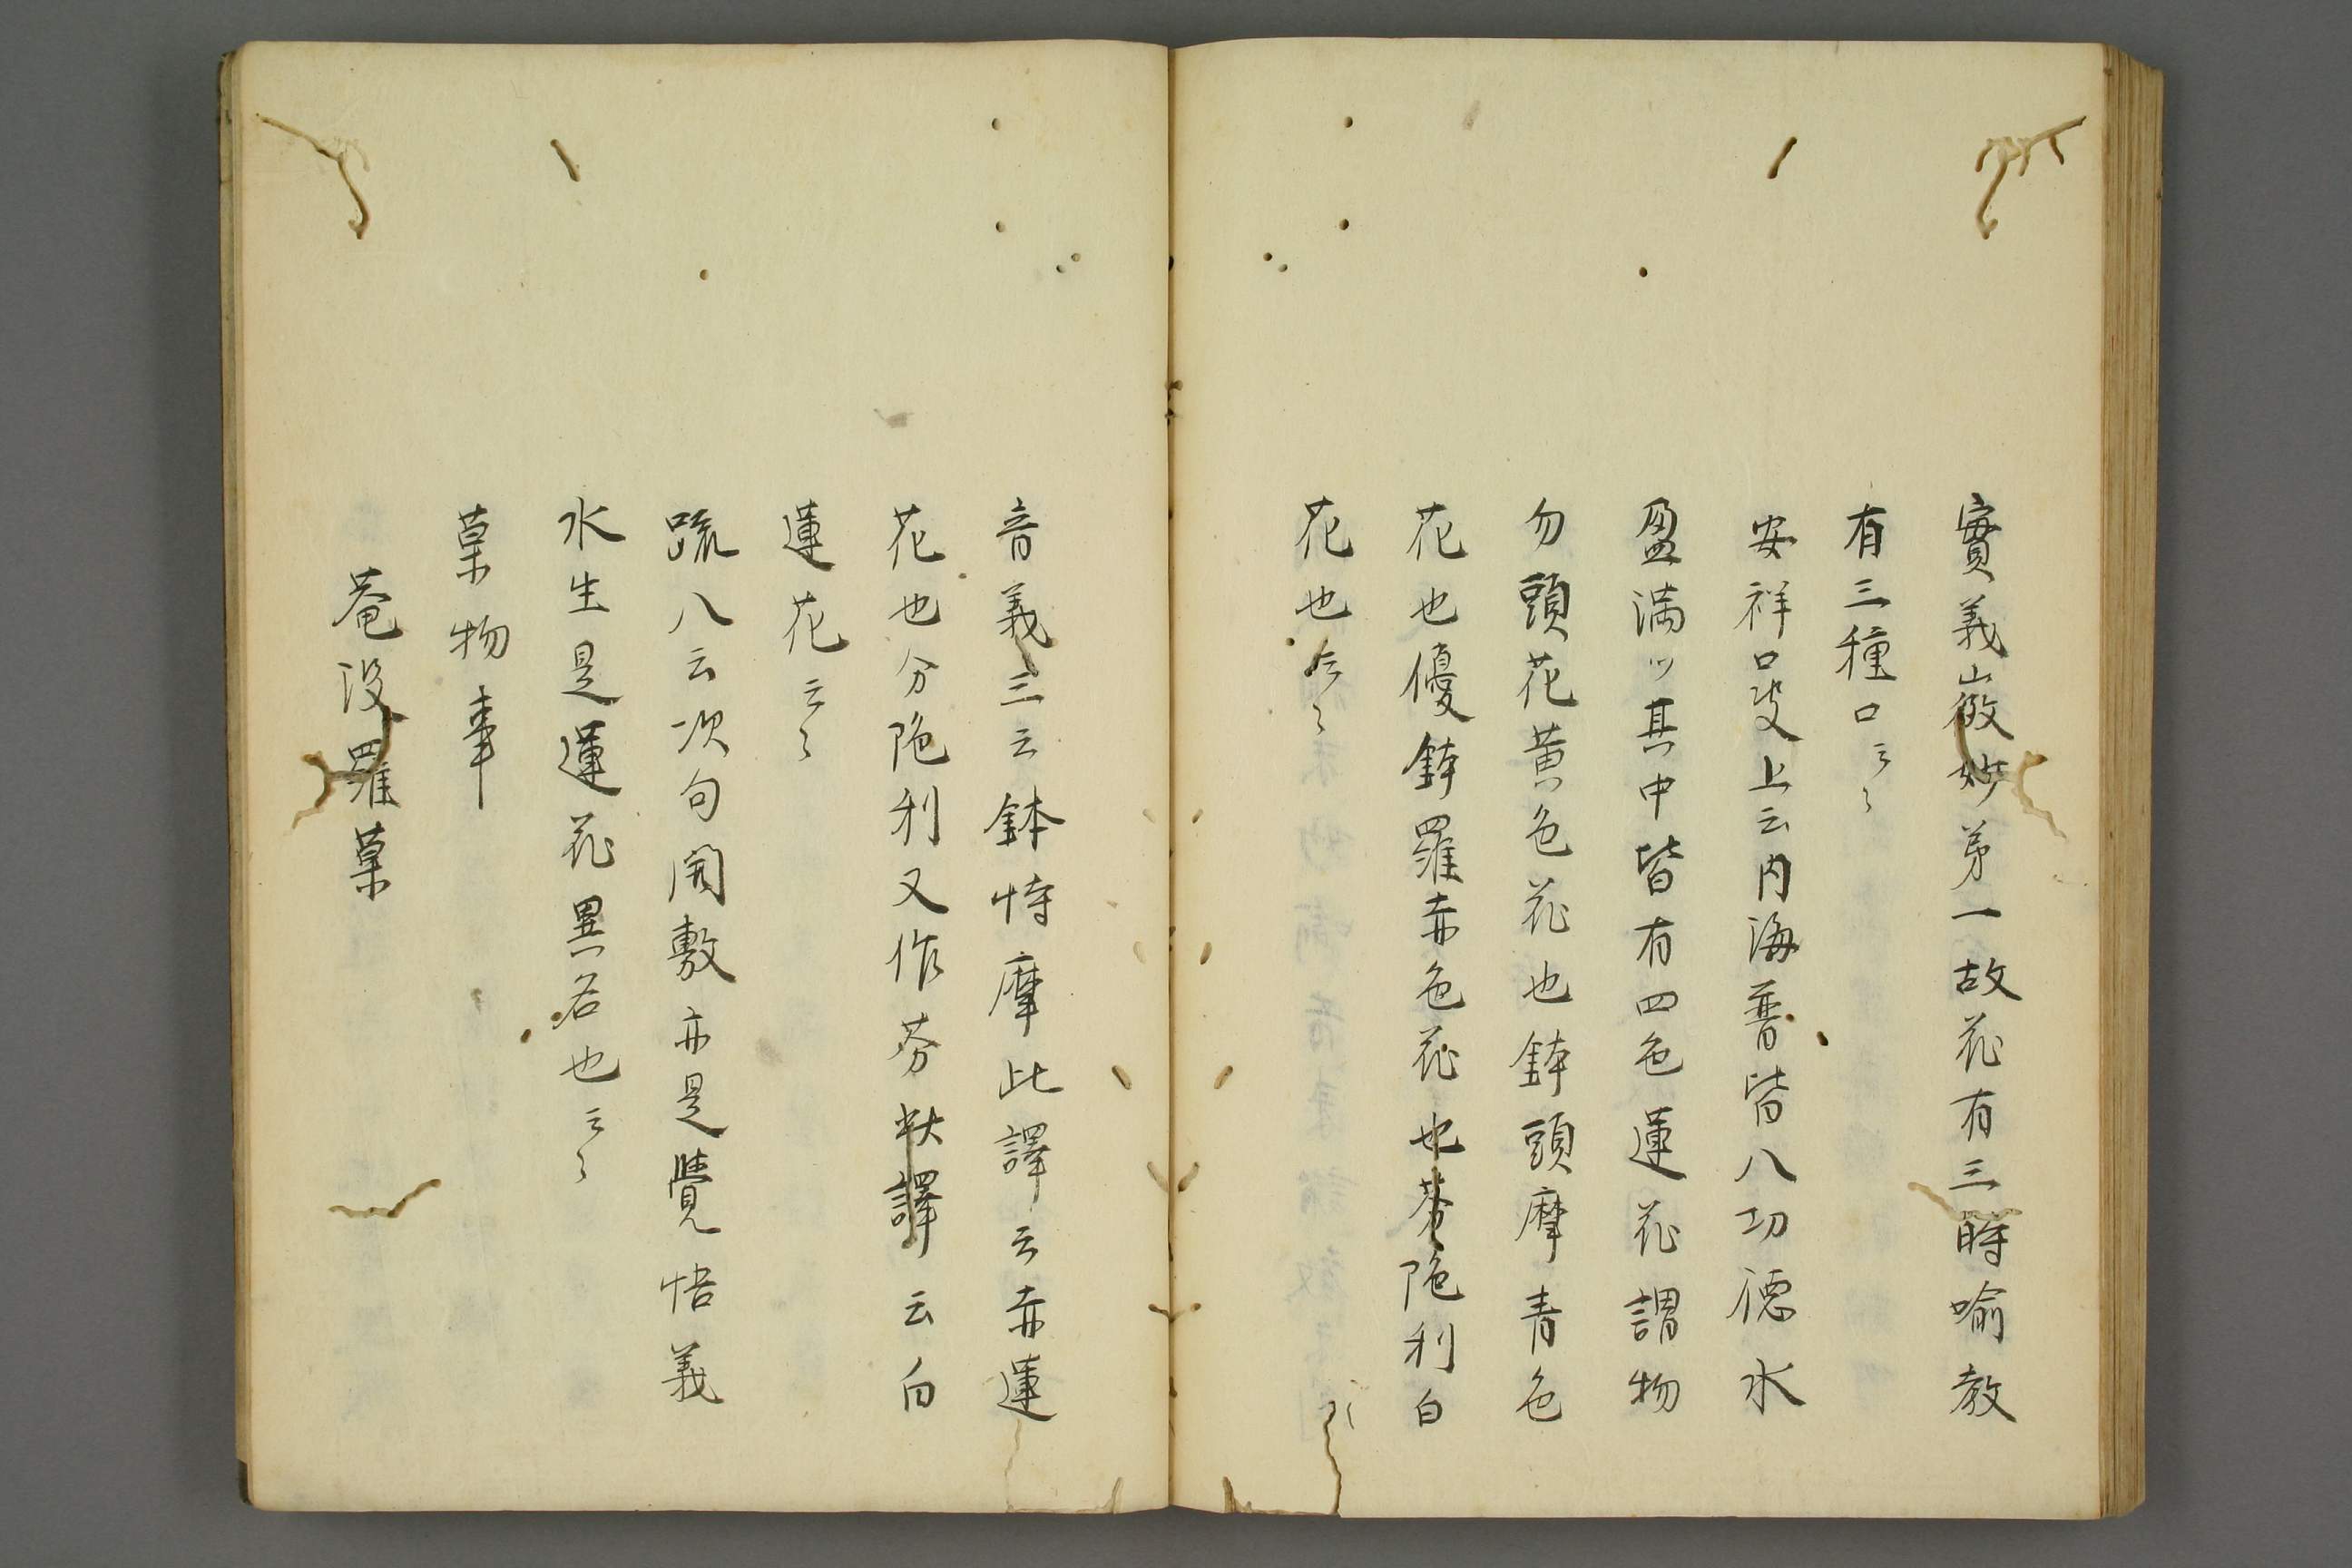 實義㣲妙第一故花有三時喻教
有三種口云々
安祥口决上云内海普皆八功德水
盈満ツ其中皆有四色蓮花謂物
勿頭花黄色花也鉢頭摩青色
花也優鉢羅赤色花也芬陁利白
花也云々
音義三云鉢恃摩此譯云赤蓮
花也分陁利又作芬㹜譯云白
蓮花云々
䟽八云次句開敷亦是覺悟義
水生是蓮花異名也云々
菓物事
菴没羅菓